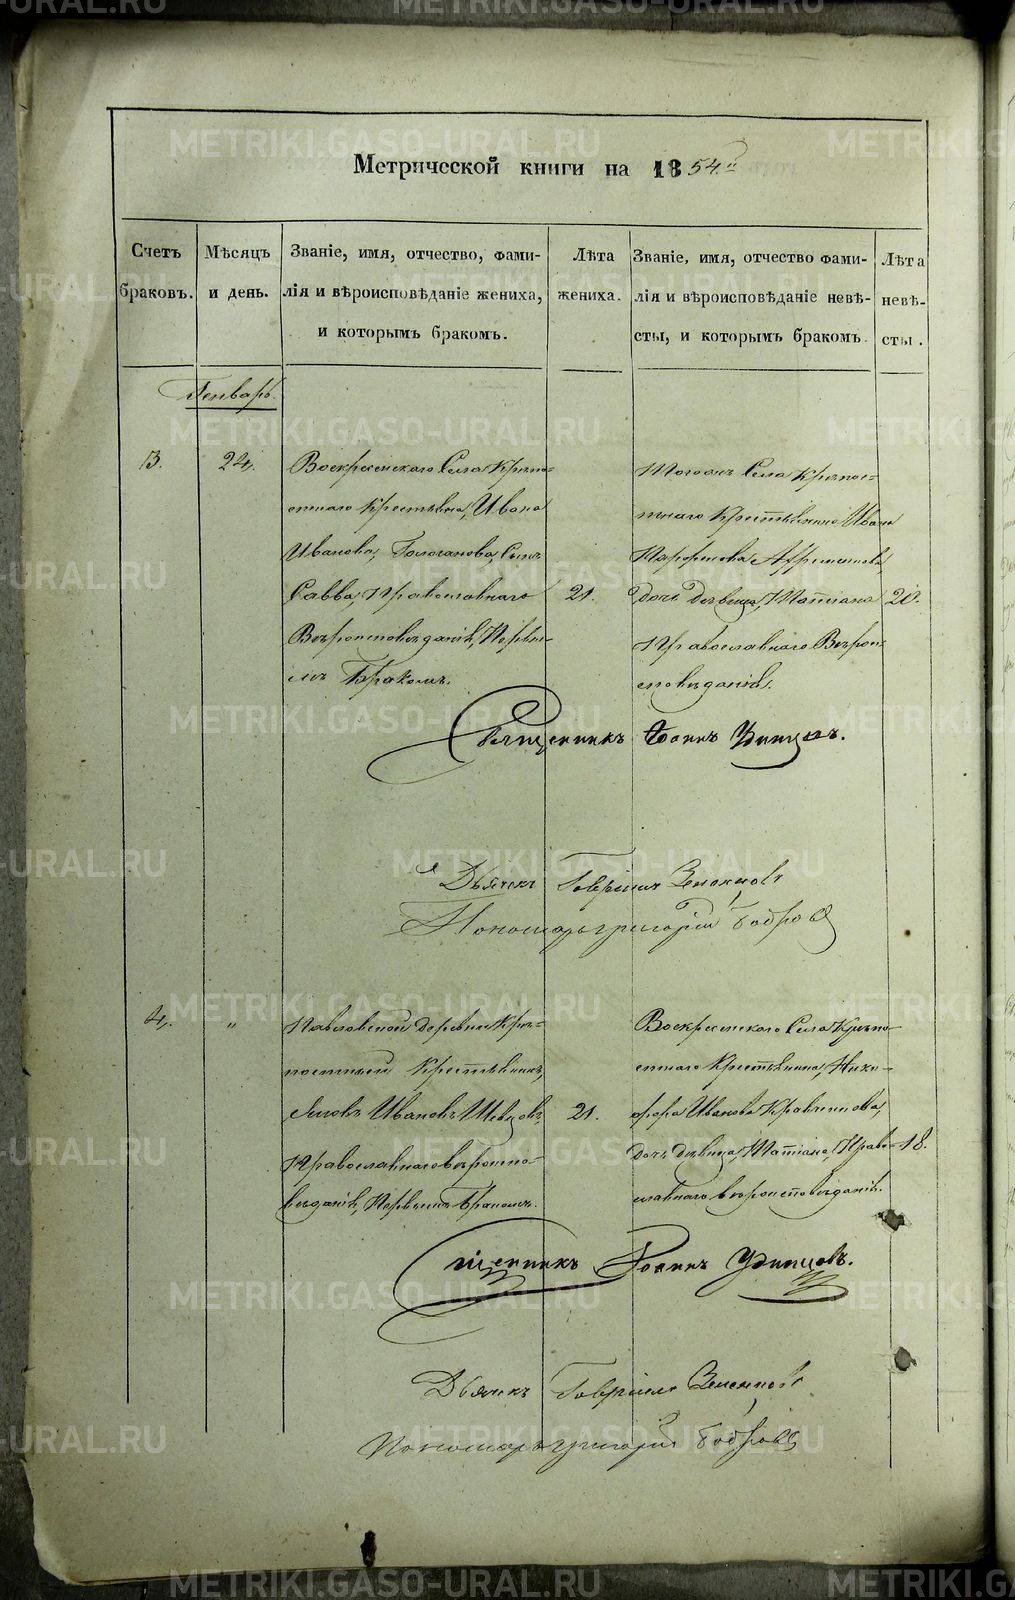 Метрической книги на 1854.й
Счетъ браковъ.
Мѣсяцъ и день.
Званіе, имя, отчество, фами-
лія и вѣроисповѣданіе жениха,
и которымъ бракомъ.
Лѣта жениха.
Званіе, имя, отчество фами-
лія и вѣроисповѣданіе невѣ-
сты, и которымъ бракомъ.
Лѣта невѣ-
сты.
Генварь.
3.
24.
Воскресенскаго Села Крѣпо-
стнаго Крестьянина, Ивана
Иванова, Сынъ
Савва, Православнаго
Вѣроисповѣданія, Первы-
мъ Бракомъ.
21.
Тогожъ Села Крѣпос-
тнаго Крестьянина Ивана
дочь дѣвица, Татіана
Православнаго Вѣрои-
сповѣданія.
20.
Священникъ Іоаннъ Удинцовъ.
Дьячекъ Гавріилъ
Пономарь Григорій Бобровъ
4.
"
Павловской деревни Крѣ-
постный Крестьянинъ,
Іаковъ Ивановъ Шевцовъ,
Православнаго вѣроиспо-
вѣданія, Первымъ Бракомъ.
21.
Воскресенскаго Села Крѣпо-
стнаго Крестьянина, Ники-
фора Иванова
дочь дѣвица, Татіана, Право-
славнаго вѣроисповѣданія.
18.
Священникъ Іоаннъ Удинцовъ.
Дьячекъ Гавріилъ
Пономарь Григорій Бобровъ
METRIKI.GASO-URAL.RU